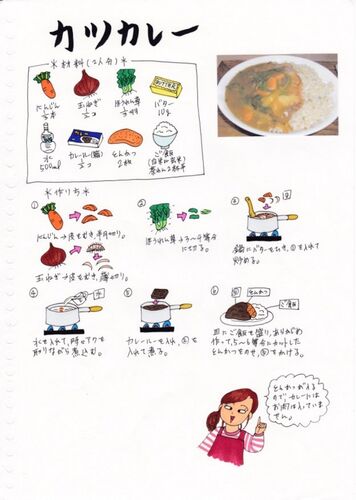 カツカレー
*材料(2人分)*
にんじん
½本
玉ねぎ
½コ
ほうれん草
バター
10g
BUTTER
水
500ml
カレールー(箱)
½コ
とんかつ
2枚
ご飯
*作り方*
①
にんじん→皮をむき、半月切り。
玉ねぎ→皮をむき、薄切り。
②
ほうれん草→3〜4等分
に切る。
③
①
鍋にバターをひき、①を入れて
炒める。
④
水
水を入れて、時々アクを
取りながら煮込む。
⑤
カレールーを入れ、②を
入れて煮る。
⑥
⑤
とんかつ
ご飯
皿にご飯を盛り、
作って、5〜6等分にカットした
とんかつをのせ、⑤をかける。
とんかつが入る
のでカレーには
お肉は入っていま
せん。